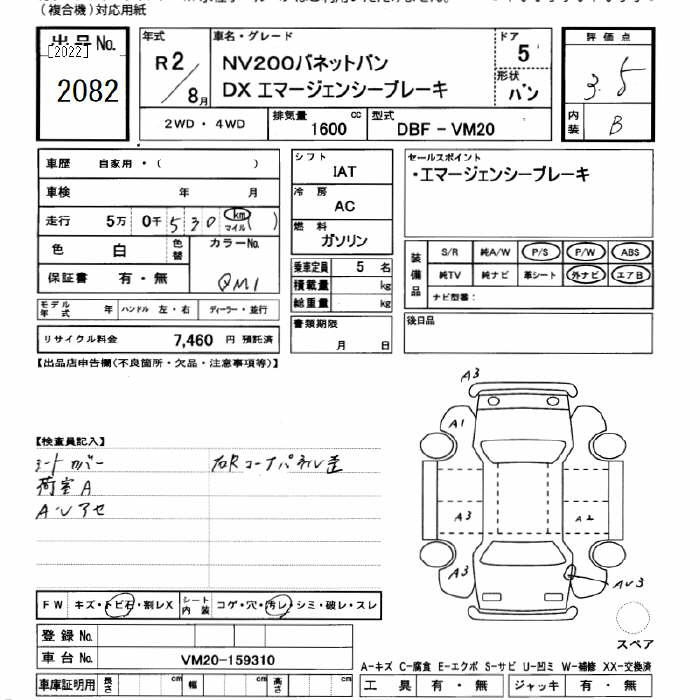 (複合機)対応用紙
出品No.
[2022]
2082
年式
R2/8月
車名・グレード
NV200バネットバン
DX エマージェンシーブレーキ
ドア
5
形状
バン
評価点
3.5
内装
B
2WD・4WD
排気量
1600 cc
型式
DBF-VM20
車歴 自家用・( )
車検 年 月
走行 5万 0千 530 km マイル ( )
色 白 色替 カラーNo.
保証書 有・無 QM1
モデル年式 年 ハンドル 左・右 ディーラー・並行
リサイクル料金 7,460 円 預託済
シフト
IAT
冷房
AC
燃料
ガソリン
乗車定員 5 名
積載量 kg
総重量 kg
書類期限
月 日
セールスポイント
・エマージェンシーブレーキ
装備品
S/R 純A/W P/S P/W ABS
純TV 純ナビ 革シート 外ナビ エアB
ナビ型番:
後日品
【出品店申告欄(不良箇所・欠品・注意事項等)】
【検査員記入】
シートカバー 右Rコーナパネル歪
荷室A
A・Uアセ
A3
A1
A3
A2
A3
AU3
スペア
FW キズ・トビ石・割レX シート内装 コゲ・穴・汚レ・シミ・破レ・スレ
登録No.
車台No. VM20-159310
車庫証明用 長さ cm 幅 cm 高さ cm
A-キズ C-腐食 E-エクボ S-サビ U-凹ミ W-補修 XX-交換済
工具 有・無 ジャッキ 有・無